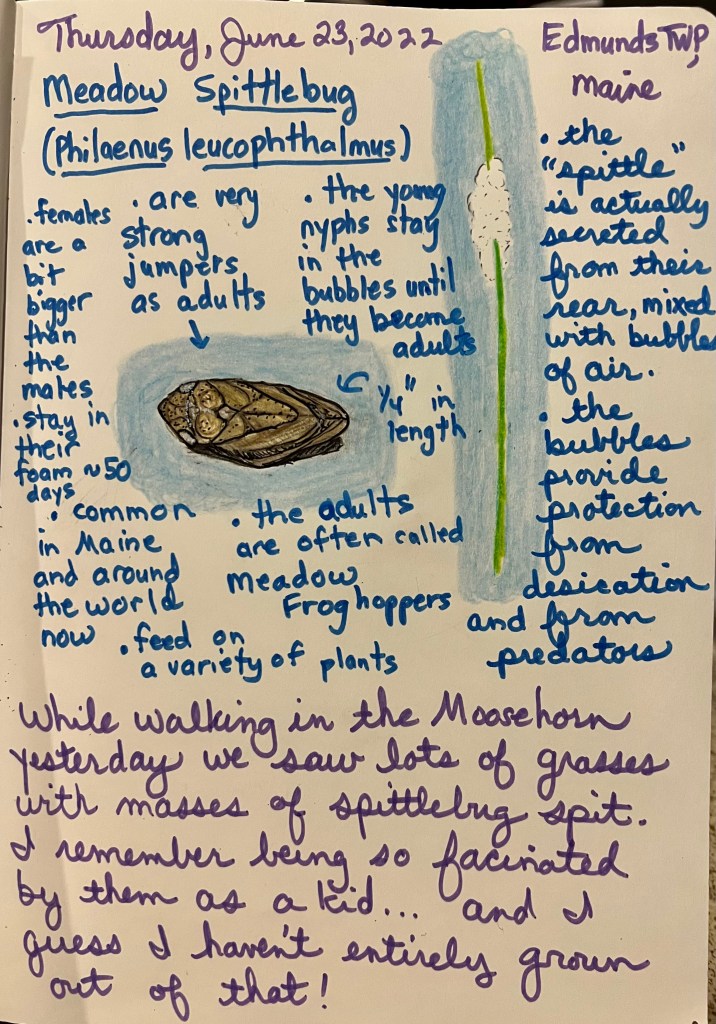 Thursday, June 23, 2022
Edmunds TWP,
Maine
Meadow Spittlebug
(Philaenus leucophthalmus)
. females
are a
bit
bigger
than
the
males
. stay in
their
foam ~50
days
. are very
strong
jumpers
as adults
. the young
nyphs stay
in the
bubbles until
they become
adults
1/4" in
length
. the
"spittle"
is actually
secreted
from their
rear, mixed
with bubbles
of air.
. the
bubbles
provide
protection
from
desication
and from
predators
. common
in Maine
and around
the world
now
. the adults
are often called
meadow
Froghoppers
. feed on
a variety of plants
While walking in the Moosehorn
yesterday we saw lots of grasses
with masses of spittlebug spit.
I remember being so facinated
by them as a kid... and I
guess I haven't entirely grown
out of that!